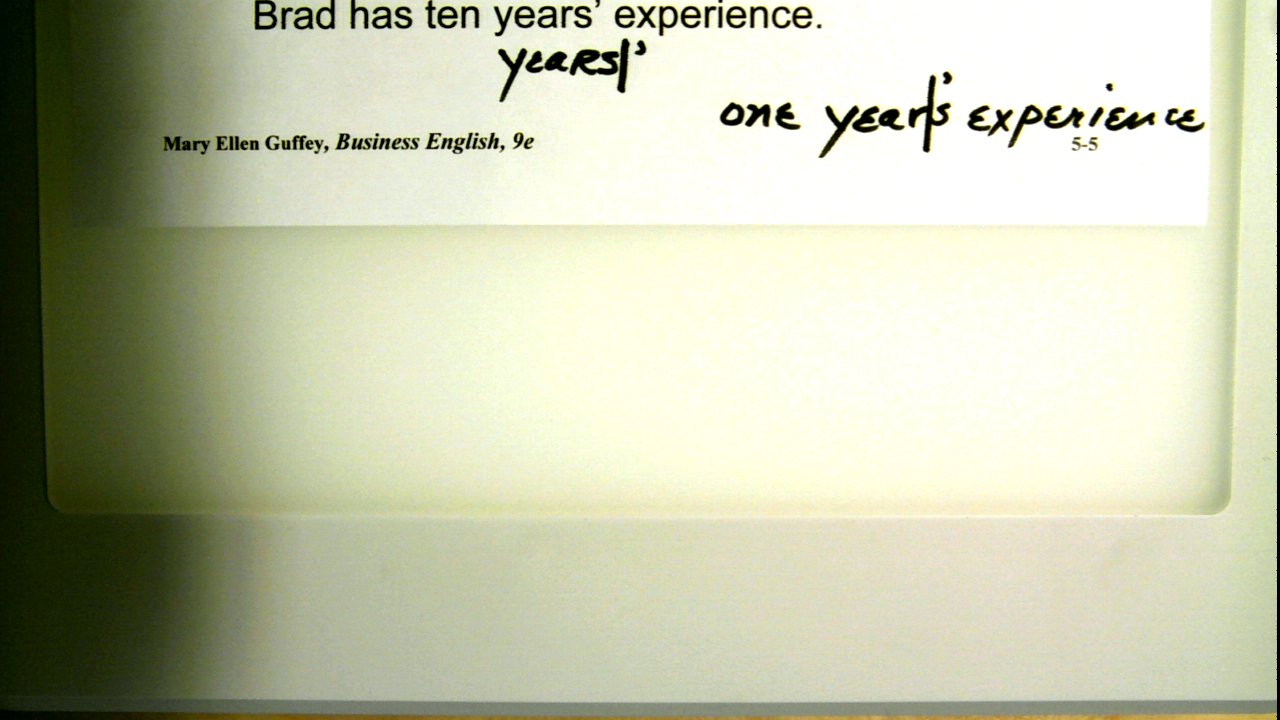 Brad has ten years’ experience.
years|’
one year|’s experience
Mary Ellen Guffey, Business English, 9e
5-5